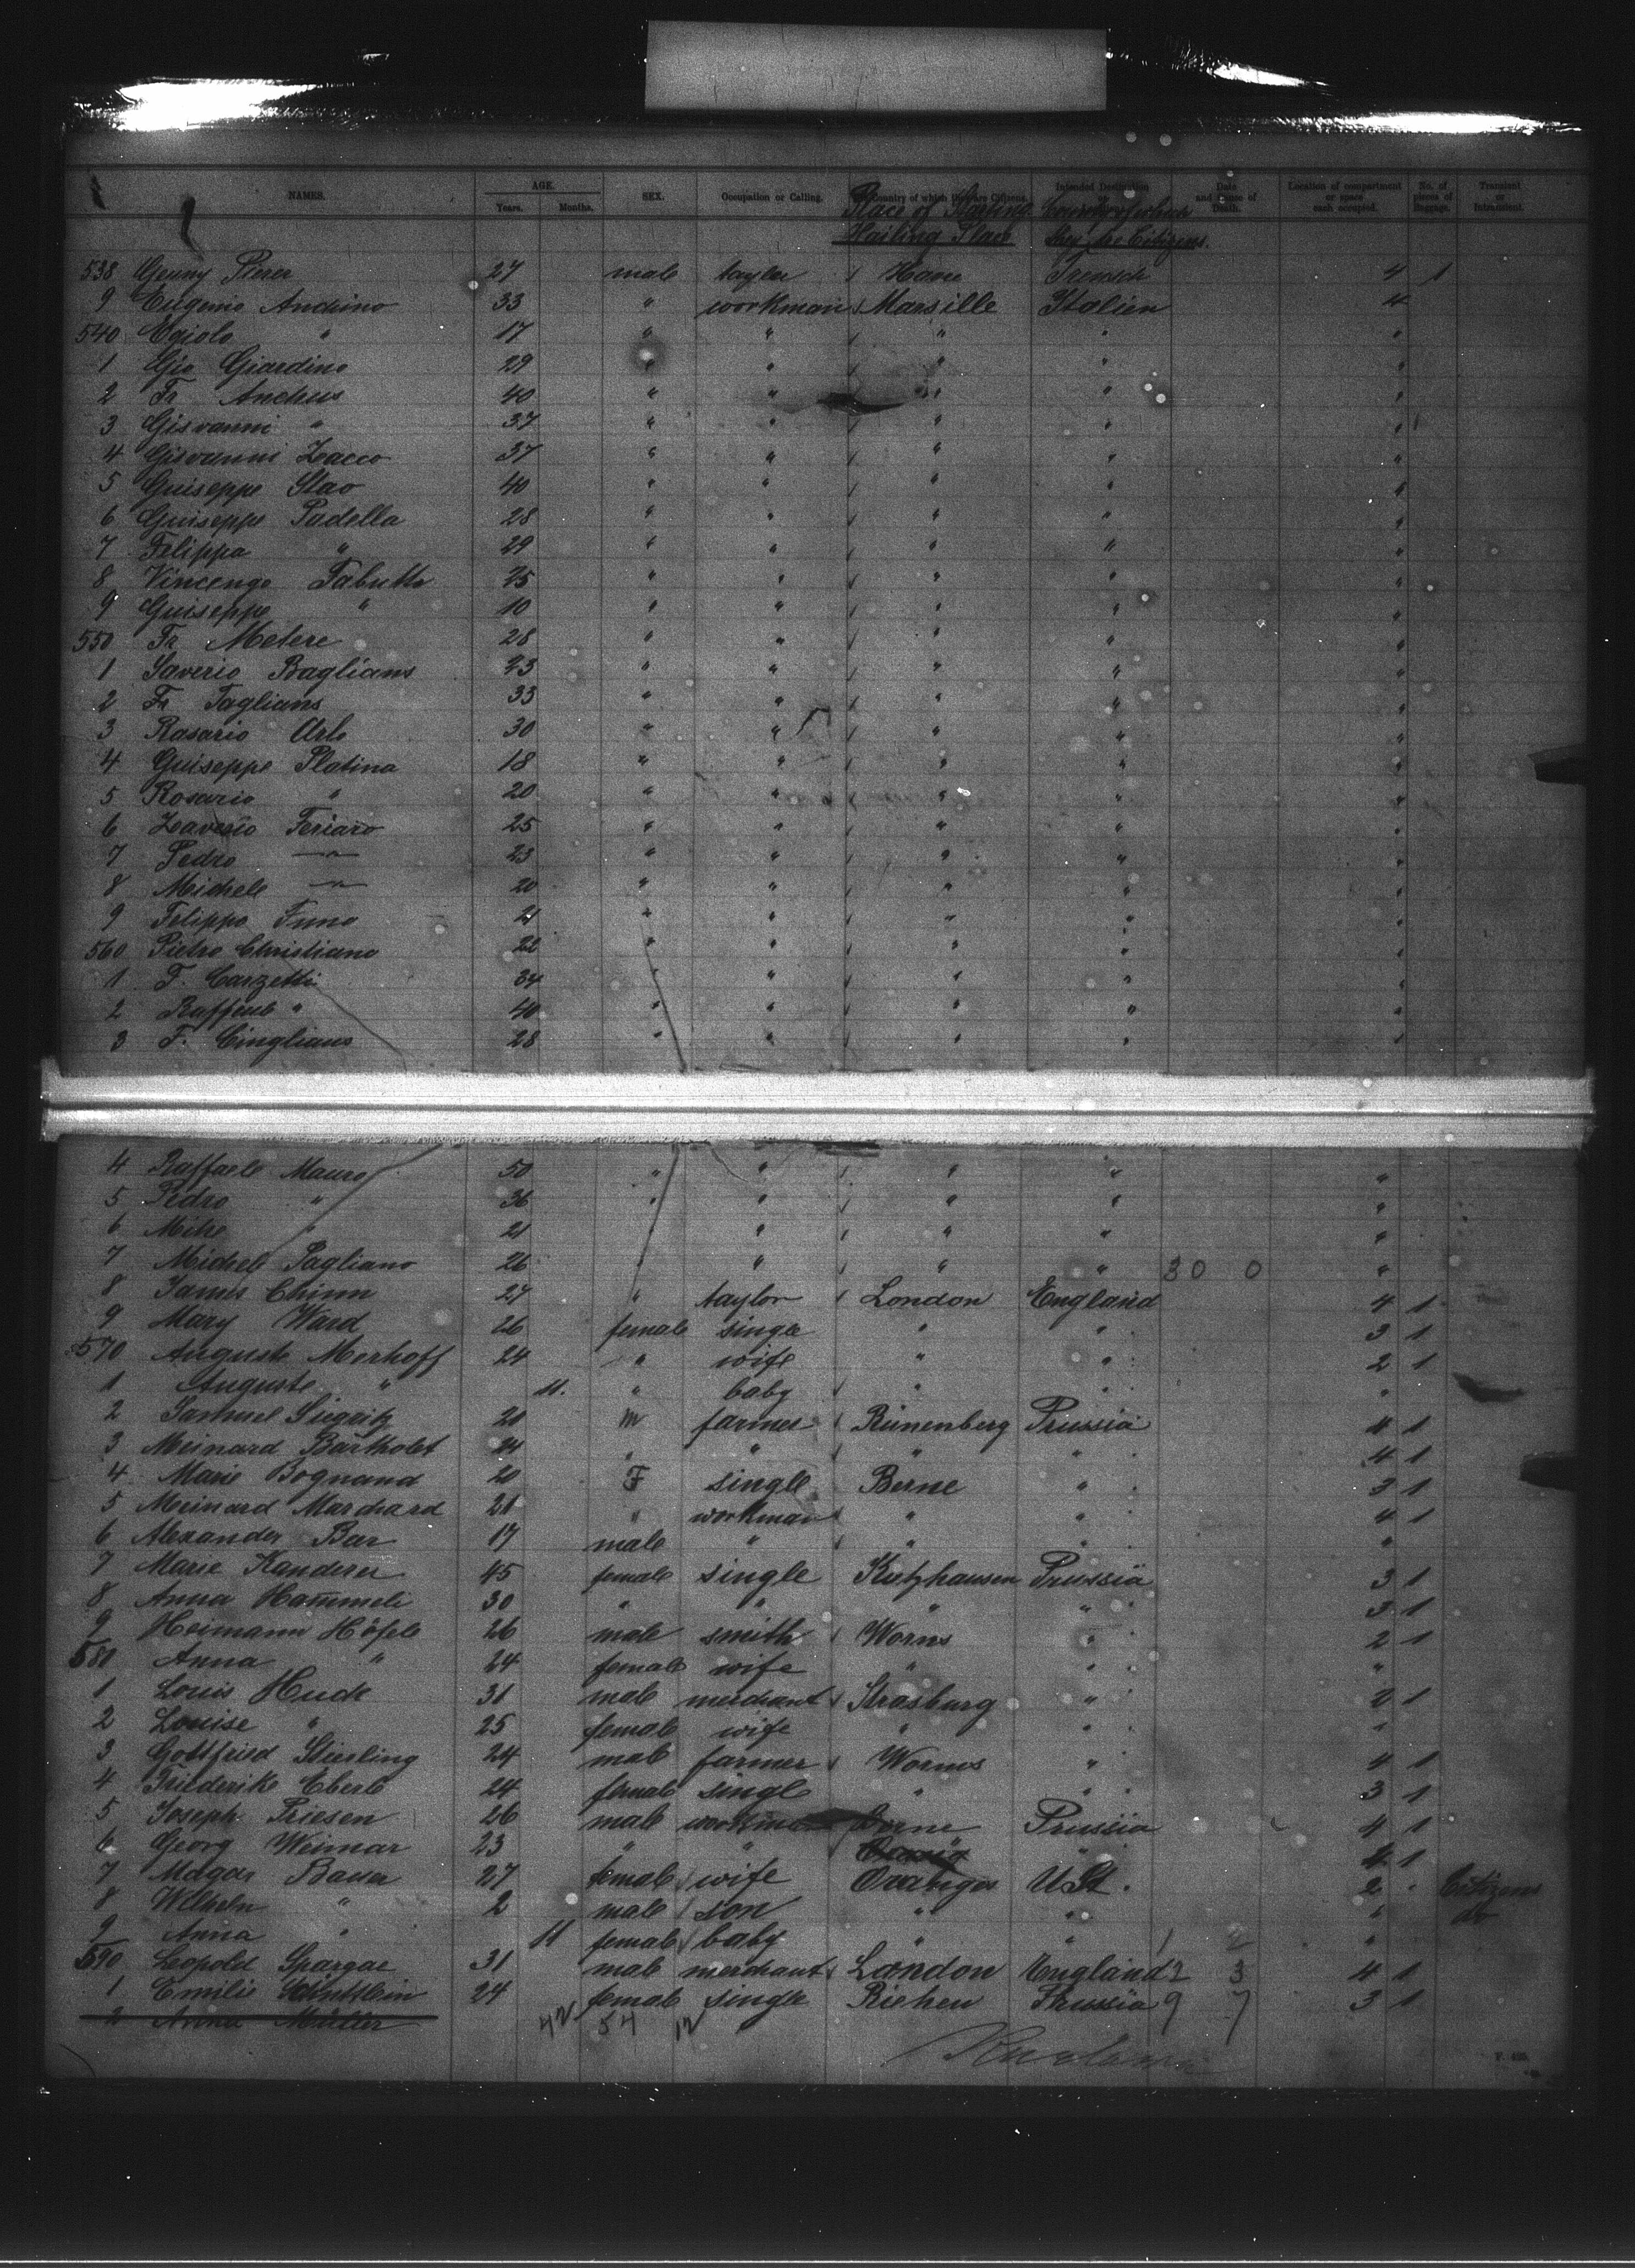 NAMES. AGE. Years. Months. SEX. Occupation or Calling. Country of which they are Citizens. Intended Destination Date and Cause of Death. Location of compartment or space each occupied. No. of pieces of Baggage. Transient or Intransient.
Place of
Hailing Place they are Citizens.
538 Genny 27 male taylor 4 1
9 Eugenio Andrino 33 " workman Marsille Italien 4
540 " 17 " " " " "
1 Gio Giardino 29 " " " "
2 Fr Anchus 40 " " " " "
3 Gisvanni " 37 " " " " "
4 Gisvanni Zacco 37 " " " " "
5 Guiseppe Stao 40 " " " " "
6 Guiseppe Padella 28 " " " " "
7 Felippa " 29 " " " " "
8 Vincengo 25 " " " " "
9 Guiseppe " 10 " " " " "
550 Fr Metere 28 " " " " "
1 Saverio Baglians 23 " " " " "
2 Fr Taglians 33 " " " "
3 Rasario Arlo 30 " " " " "
4 Guiseppe Platina 18 " " " " "
5 Rosario " 20 " " " " "
6 Zaverio Feriaro 25 " " " " "
7 Pedro " 23 " " " " "
8 Michele " 20 " " " " "
9 Felippo Funo 21 " " " " "
560 Pietro Christiano 22 " " " " "
1 F. Carzetti 34 " " " " "
2 " 40 " " " " "
3 F. Cinglians 28 " " " " "
4 Raffaele Mauro 50 " " " " "
5 Pedro " 36 " " " " "
6 Mike " 21 " " " " "
7 Michele Pagliano 26 " " " " 30 0 "
8 James Chinn 27 " taylor London England 4 1
9 Mary Ward 26 female single " " 3 1
570 Auguste Merhoff 24 " wife " " 2 1
1 Auguste " 11. " baby " " "
2 Samuel 21 m farmer Rünenberg Prussia 4 1
3 Meinard Bartholet 24 " " " " 4 1
4 Marie Bognand 20 F single Berne " 3 1
5 Meinard Marchard 21 " workman " " 4 1
6 Alexander Bar 17 male " " " "
7 Marie Kanderer 45 female single Kutzhausen Prussia 3 1
8 Anna Hammeli 30 " " " " 3 1
9 Heimann Höfele 26 male smith Worns " 2 1
580 Anna " 24 female wife " " "
1 Louis Huck 31 male merchant Strasburg " 2 1
2 Louise " 25 female wife " " "
3 Gottfried Stiesling 24 male farmer Worms " 4 1
4 Friederike Eberle 24 female single " " 3 1
5 Joseph Friesen 26 male workman Berne Prussia 4 1
6 Georg Weimar 23 " " " 4 1
7 Magda Bauer 27 female wife Oranges U St. 2 " Citizens
8 Wilhelm " 2 male son " " " do
9 Anna " 11 female baby " " 1 2 "
590 Leopold Spargae 31 male merchant London England 2 3 4 1
1 Emilie 24 female single Riehen Prussia 9 7 3 1
2 Anna Müller 42 54 12